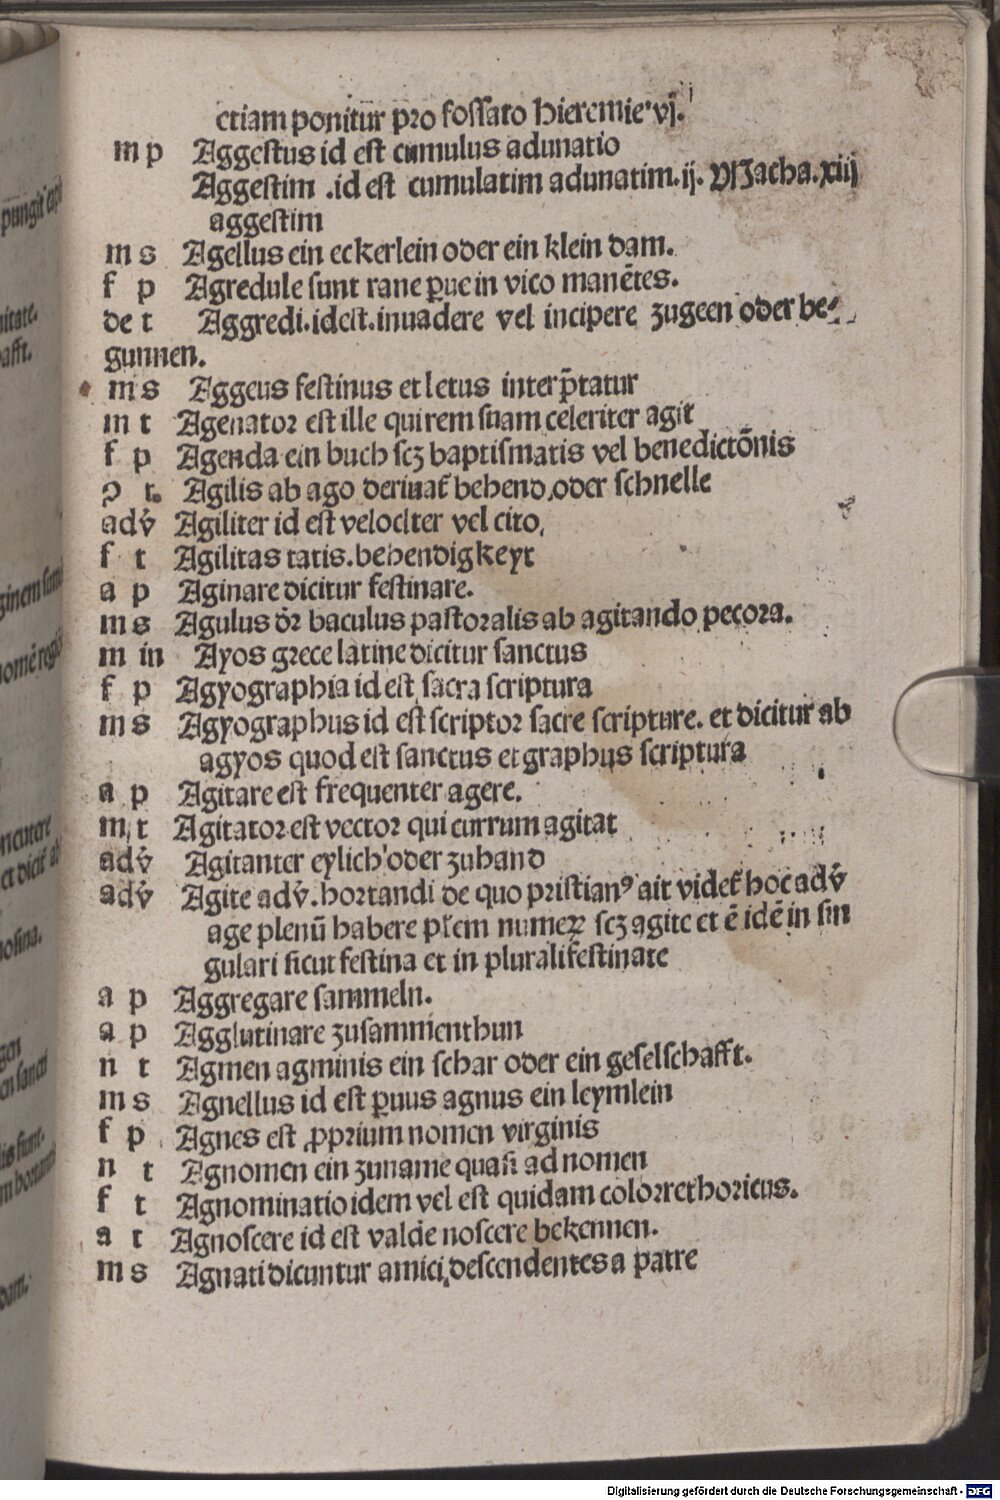 etiam ponitur pro fossato Hieremie vj.
m p Aggestus id est cumulus adunatio
Aggestim .id est cumulatim adunatim.ij. Macha.xiij
aggestim
m s Agellus ein eckerlein oder ein klein dam.
f p Agredule sunt rane ꝑue in vico manẽtes.
de t Aggredi.idest.inuadere vel incipere zugeen oder be⸗
gunnen.
m s Aggeus festinus et letus interp̃tatur
m t Agenator est ille qui rem suam celeriter agit
f p Agenda ein buch scz baptismatis vel benedictõnis
o t. Agilis ab ago deriuat᷒ behend.oder schnelle
adv̓ Agiliter id est velociter vel cito.
f t Agilitas tatis.behendigkeyt
a p Aginare dicitur festinare.
m s Agulus dr̃ baculus pastoralis ab agitando pecora.
m in Ayos grece latine dicitur sanctus
f p Agyographia id est sacra scriptura
m s Agyographus id est scriptor sacre scripture. et dicitur ab
agyos quod est sanctus et graphus scriptura
a p Agitare est frequenter agere.
m t Agitator est vector qui currum agitat
adv̓ Agitanter eylich oder zuhand
adv̓ Agite adv̓.hortandi de quo pristianꝰ ait videt᷒ hoc adv̓
age plenũ habere pl̃em numeꝝ scz agite et ẽ idẽ in sin
gulari sicut festina et in plurali festinate
a p Aggregare sammeln.
a p Agglutinare zusammenthun
n t Agmen agminis ein schar oder ein geselschafft.
m s Agnellus id est ꝑuus agnus ein leymlein
f p Agnes est ꝓprium nomen virginis
n t Agnomen ein zuname quasi ad nomen
f t Agnominatio idem vel est quidam color rethoricus.
a t Agnoscere id est valde noscere bekennen.
m s Agnati dicuntur amici descendentes a patre
Digitalisierung gefördert durch die Deutsche Forschungsgemeinschaft - DFG